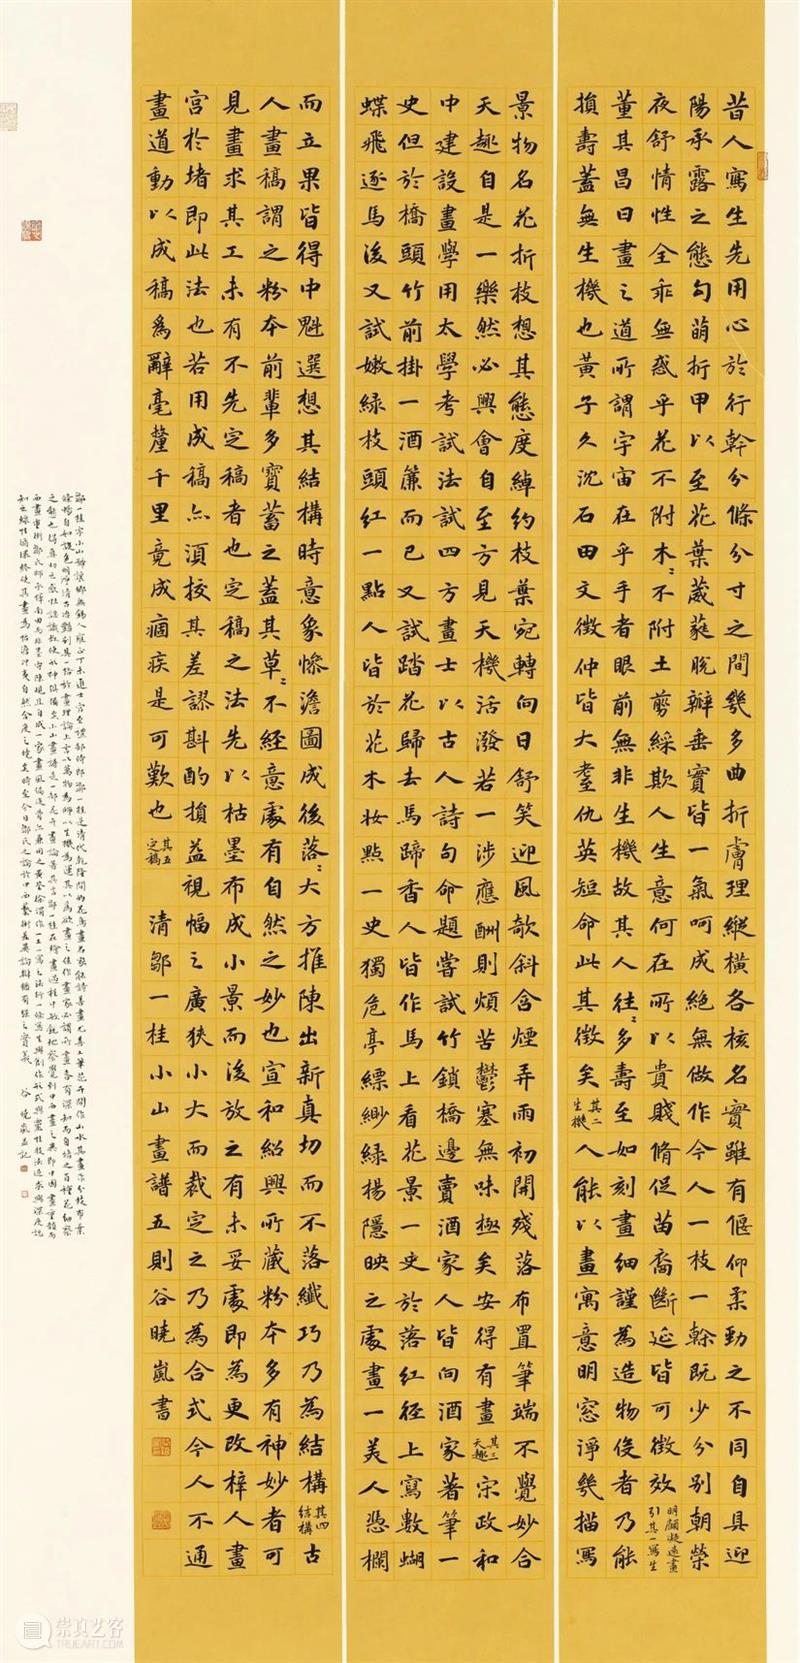 昔人寫生先用心於行幹分條分寸之間幾多曲折膚理縱橫各核名實雖有偃仰柔勁之不同自具迎
陽承露之態勾萌折甲以至花葉葳蕤脫瓣垂實皆一氣呵成絕無做作今人一枝一榦既少分別朝榮
夜舒情性全乖無惑乎花不附木〻不附土剪綵欺人生意何在所以貴賤脩促苗裔斷延皆可徵效明顧凝遠畫引其一寫生
董其昌曰畫之道所謂宇宙在乎手者眼前無非生機故其人往〻多壽至如刻畫細謹為造物役者乃能
損壽蓋無生機也黃子久沈石田文徵仲皆大耋仇英短命此其徵矣其二生機人能以畫寓意明窓淨幾描寫
景物名花折枝想其態度綽約枝葉宛轉向日舒笑迎風欹斜含煙弄雨初開殘落布置筆端不覺妙合
天趣自是一樂然必興會自至方見天機活潑若一涉應酬則煩苦鬱塞無味極矣安得有畫其三天趣宋政和
中建設畫學用太學考試法試四方畫士以古人詩句命題嘗試竹鎖橋邊賣酒家人皆向酒家著筆一
史但於橋頭竹前掛一酒簾而已又試踏花歸去馬蹄香人皆作馬上看花景一史於落紅徑上寫數蝴
蝶飛逐馬後又試嫩綠枝頭紅一點人皆於花木妝點一史獨危亭縹緲綠楊隱映之處畫一美人憑欄
而立果皆得中魁選想其結構時意象慘澹圖成後落〻大方推陳出新真切而不落纖巧乃為結構其四結構古
人畫稿謂之粉本前輩多寶蓄之蓋其草〻不經意處有自然之妙也宣和紹興所藏粉本多有神妙者可
見畫求其工未有不先定稿者也定稿之法先以枯墨布成小景而後放之有未妥處即為更改梓人畫
宮於堵即此法也若用成稿亦須挍其差謬斟酌損益視幅之廣狹小大而裁定之乃為合式今人不通
畫道動以成稿為辭毫釐千里竟成痼疾是可歎也其五定稿 清鄒一桂小山畫譜五則谷曉嵐書
鄒一桂字小山
谷曉嵐并記
崇真艺客
TRUEART.COM